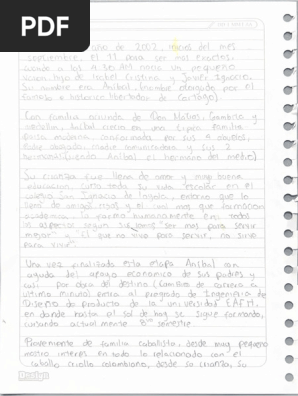 PDF
año de 2002, inicios del mes
septiembre, el 11 para ser mas exactos,
cuando a las nació un pequeño
varon hijo de Isabel Cristina y Javier Ignacio,
Su nombre era Anibal, nombre otorgado por el
famoso e historico libertador de Cartago)
Con familia oriunda de Don Matias,
Anibal crecio en una tipica familia
paisa moderna, conformada por sus 4
padre abogado, madre comunicadora y sus 2
hermanas (siendo Anibal el hermano del medio)
Su crianza fue llena de amor y muy buena
educacion, curso toda su vida escolar en el
colegio San Ignacio de loyola, entorno que lo
lleno de amigos y mas que formacion
academica, lo formo humanamente en todos
los aspectos segun sus "ser mas para servir
mejor" y "el que no vive para servir, no sirve
para vivir".
Una vez finalizado esta etapa Anibal con
ayuda del apoyo economico de sus padres y
casi por obra del destino (cambio de carrera a
ultimo minuto) entro al pregrado de Ingenieria de
Diseño de producto de la universidad EAFIT,
en donde hasta el sol de hoy se sigue formando,
cursando actualmente semestre
Proveniente de familia caballista, desde muy pequeño
mostro interes en todo lo relacionado con el
caballo criollo colombiano, desde su crianza, su